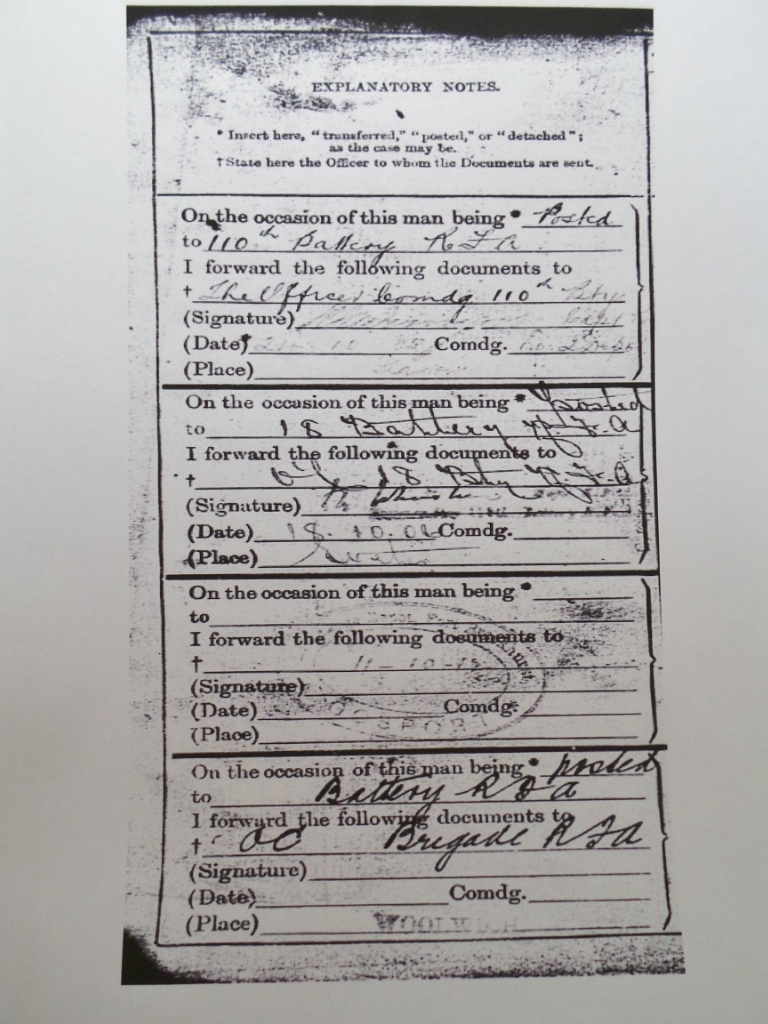 EXPLANATORY NOTES.
* Insert here, "transferred," "posted," or "detached";
as the case may be.
† State here the Officer to whom the Documents are sent.
On the occasion of this man being * Posted
to 110th Battery RFA
I forward the following documents to
† The Officer Comdg 110th Bty
(Signature)
(Date) Comdg.
(Place)
On the occasion of this man being * posted
to 18 Battery R.F.A
I forward the following documents to
† O/C 18 Bty R.F.A
(Signature)
(Date) 18.10.06 Comdg.
(Place)
On the occasion of this man being *
to
I forward the following documents to
† 11-10-15
(Signature)
(Date) Comdg.
(Place)
On the occasion of this man being * posted
to Battery RFA
I forward the following documents to
† OC Brigade RFA
(Signature)
(Date) Comdg.
(Place) WOOLWICH